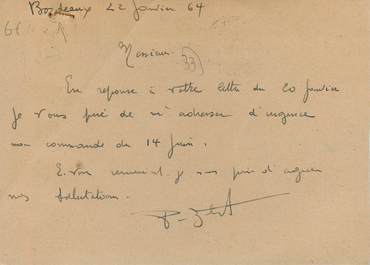 Bordeaux 22 Janvier 64
Monsieur
33
En reponse à votre lettre du 20 Janvier
Je vous prie de m'adresser d'urgence
ma commande du 14 Juin.
remerciant je vous prie d'agréer
mes salutations.